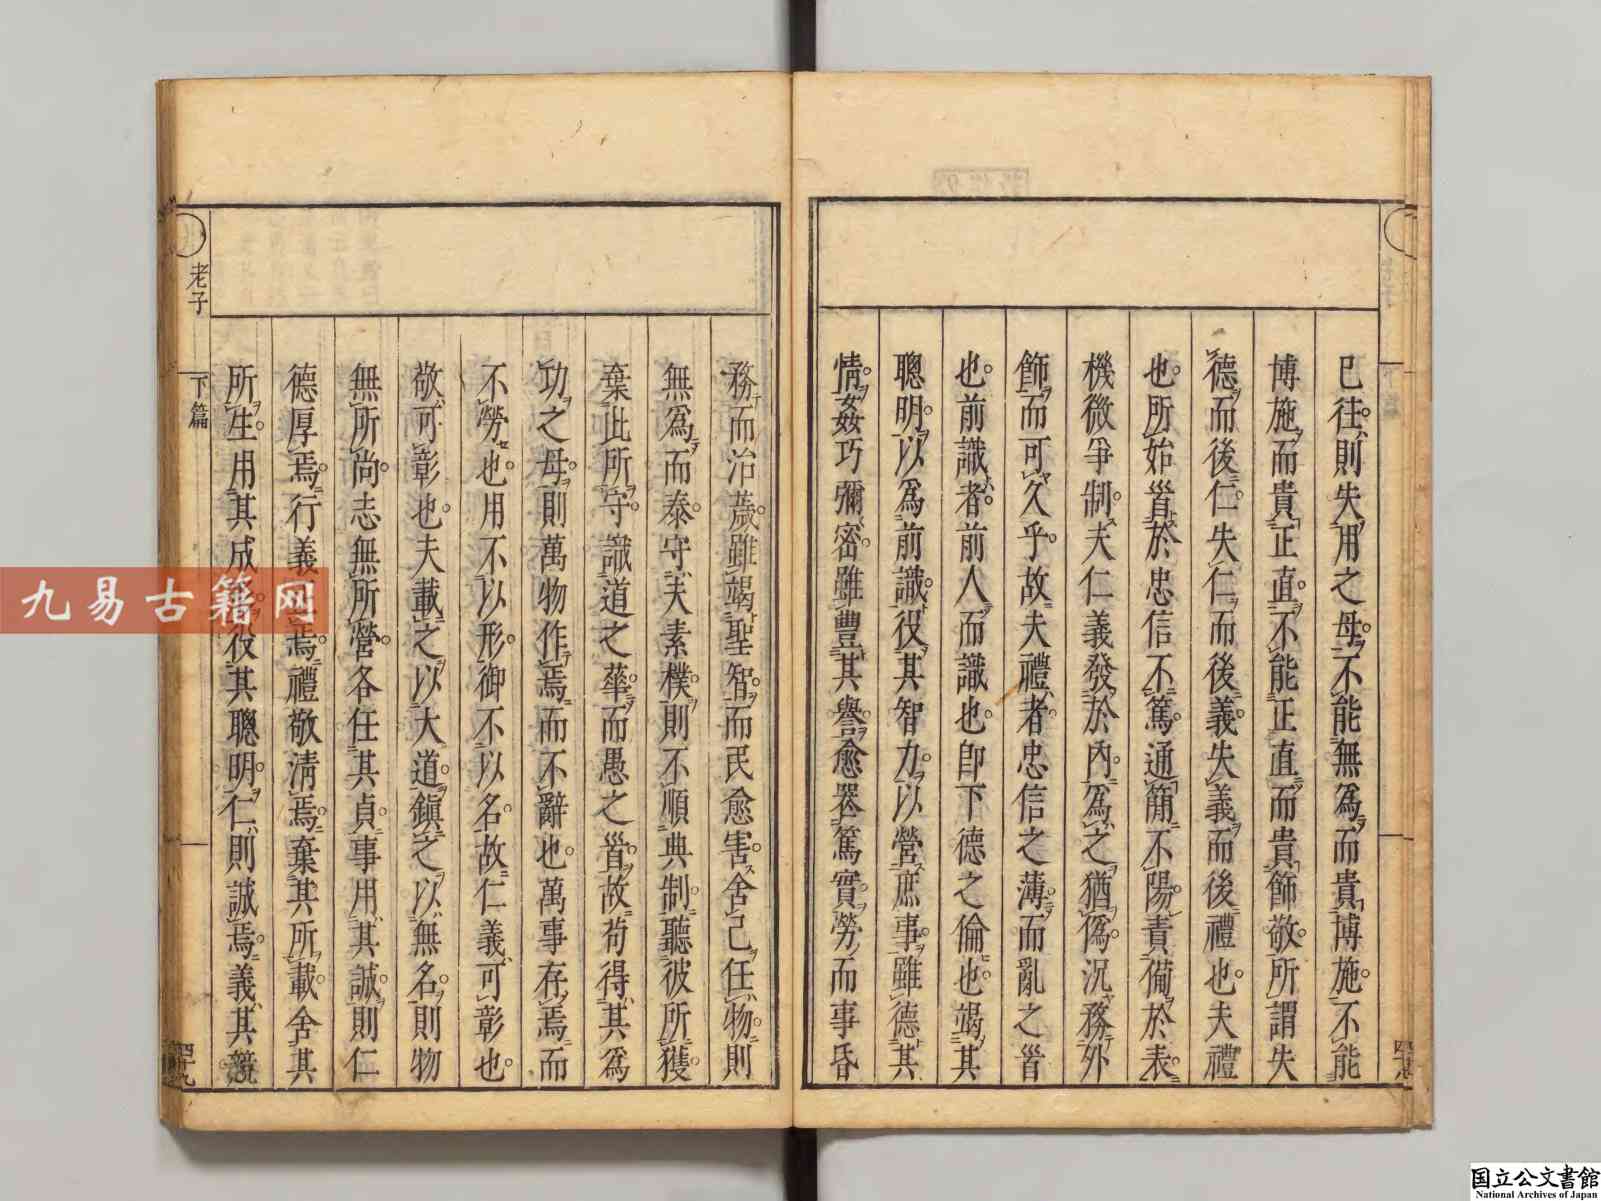 已往則失用之母不能無爲而貴博施不能
博施而貴正直不能正直而貴飾敬所謂失
德而後仁失仁而後義失義而後禮也夫禮
也所始首於忠信不篤通簡不陽責備於表
機微爭制夫仁義發於內爲之猶僞況務外
飾而可久乎故夫禮者忠信之薄而亂之首
也前識者前人而識也卽下德之倫也竭其
聰明以爲前識役其智力以營庶事雖德其
情姦巧彌密雖豐其譽愈喪篤實勞而事昏
務而治薉雖竭聖智而民愈害舍己任物則
無爲而泰守夫素樸則不順典制聽彼所獲
棄此所守識道之華而愚之首故苟得其爲
功之母則萬物作焉而不辭也萬事存焉而
不勞也用不以形御不以名故仁義可彰也
敬可彰也夫載之以大道鎭之以無名則物
無所尚志無所營各任其貞事用其誠則仁
德厚焉行義焉禮敬淸焉棄其所載舍其
所生用其成役其聰明仁則誠焉義其競
老子
下篇
四十九
九易古籍网
国立公文書館
National Archives of Japan